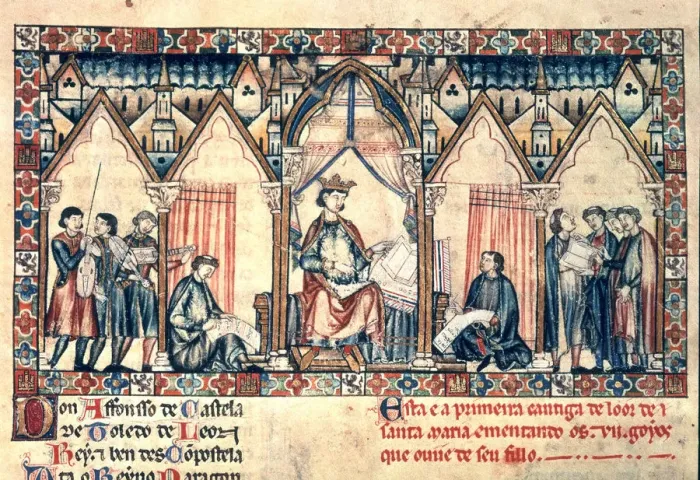 Don Affonsso de Castela
de Toledo de Leon
Rey ⁊ ben des Conpostela
Ata o Reyno Daragon
Esta e a primeira cantiga de loor de
santa maria ementando os .vii. goyos
que ouue de seu fillo.